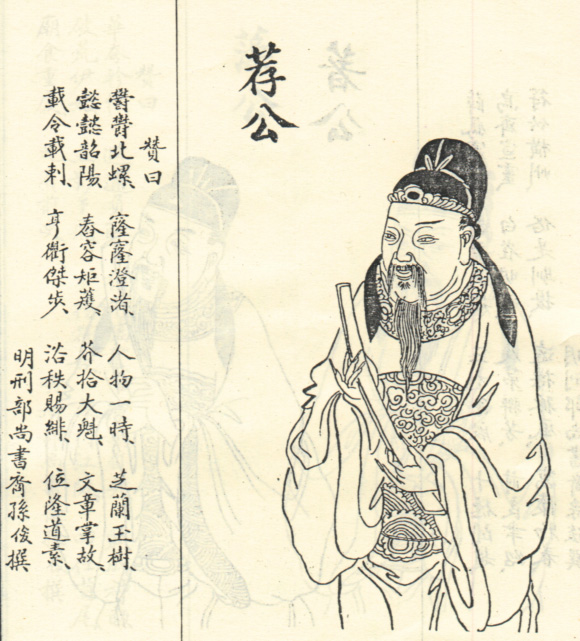 荐公
贊曰
欝欝北螺、窿窿澄渚、人物一時、芝蘭玉樹、
懿懿韶陽、舂容矩蒦、芥拾大魁、文章掌故、
載令載刺、亨衢傑步、沿秩賜緋、位隆道素、
明刑部尚書裔孫俊撰